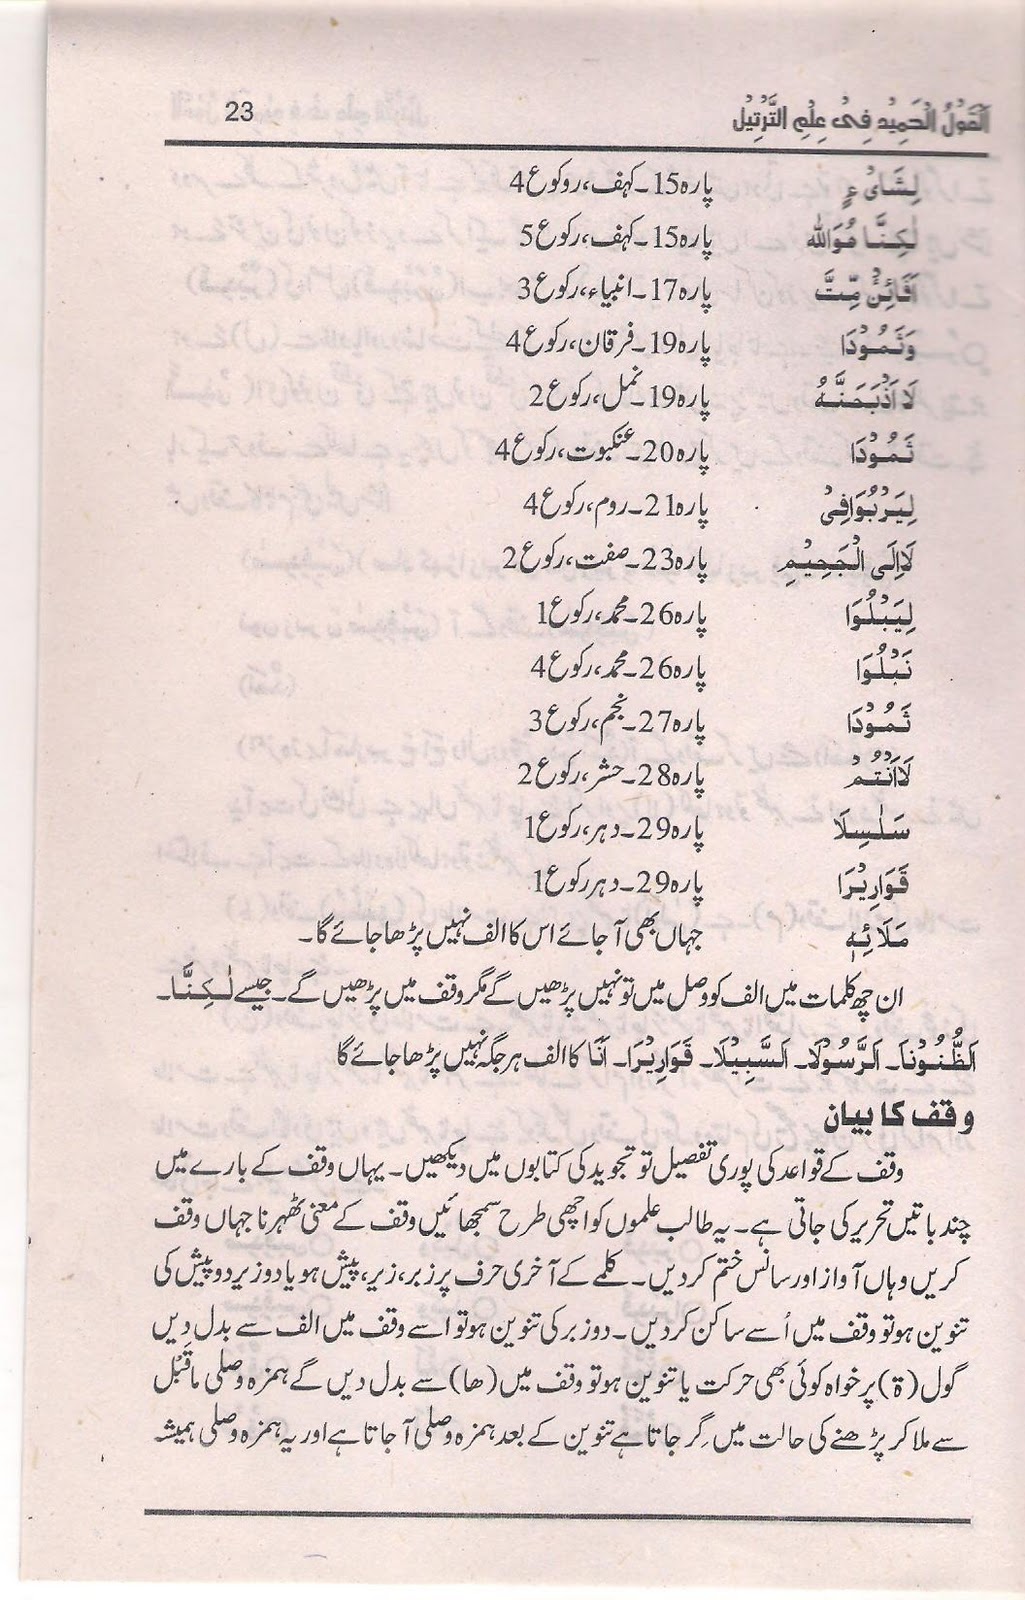 اَلْقَوْلُ الْحَمِيْد فِيْ عِلْمِ التَّرْتِيْل 23
لِشَایْءٍ پارہ15۔کہف،روکوع4
لٰكِنَّا هُوَاللّٰه پارہ15۔کہف،رکوع5
اَفَائِنْ مِّتَّ پارہ17۔انبیاء،رکوع3
وَثَمُوْدَا پارہ19۔فرقان،رکوع4
لَا اَذْبَحَنَّهٗ پارہ19۔نمل،رکوع2
ثَمُوْدَا پارہ20۔عنکبوت،رکوع4
لِيَرْبُوَافِيْ پارہ21۔روم،رکوع4
لَااِلَى الْجَحِيْمِ پارہ23۔صفت،رکوع2
لِيَبْلُوَا پارہ26۔محمد،رکوع1
نَبْلُوَا پارہ26۔محمد،رکوع4
ثَمُوْدَا پارہ27۔نجم،رکوع3
لَااَنْتُمْ پارہ28۔حشر،رکوع2
سَلٰسِلَا پارہ29۔دہر،رکوع1
قَوَارِيْرَا پارہ29۔دہررکوع1
مَلَائِهٖ جہاں بھی آجائے اس کا الف نہیں پڑھا جائے گا۔
ان چھ کلمات میں الف کو وصل میں تو نہیں پڑھیں گے مگر وقف میں پڑھیں گے۔جیسے لٰكِنَّا۔
اَلظُّنُوْنَا۔ اَلرَّسُوْلَا۔ اَلسَّبِيْلَا۔ قَوَارِيْرَا۔ اَنَا کا الف ہر جگہ نہیں پڑھا جائے گا
وقف کا بیان
وقف کے قواعد کی پوری تفصیل تو تجوید کی کتابوں میں دیکھیں۔ یہاں وقف کے بارے میں
چند باتیں تحریر کی جاتی ہے۔ یہ طالب علموں کو اچھی طرح سمجھائیں وقف کے معنی ٹھہرنا جہاں وقف
کریں وہاں آواز اور سانس ختم کردیں۔ کلمے کے آخری حرف پر زبر، زیر، پیش ہو یا دو زیر دو پیش کی
تنوین ہو تو وقف میں اُسے ساکن کردیں۔ دو زبر کی تنوین ہو تو اسے وقف میں الف سے بدل دیں
گول (ۃ) پر خواہ کوئی بھی حرکت یا تنوین ہو تو وقف میں (ھا) سے بدل دیں گے ہمزہ وصلی ماقبل
سے ملا کر پڑھنے کی حالت میں گِر جاتا ہے تنوین کے بعد ہمزہ وصلی آجاتا ہے اور یہ ہمزہ وصلی ہمیشہ